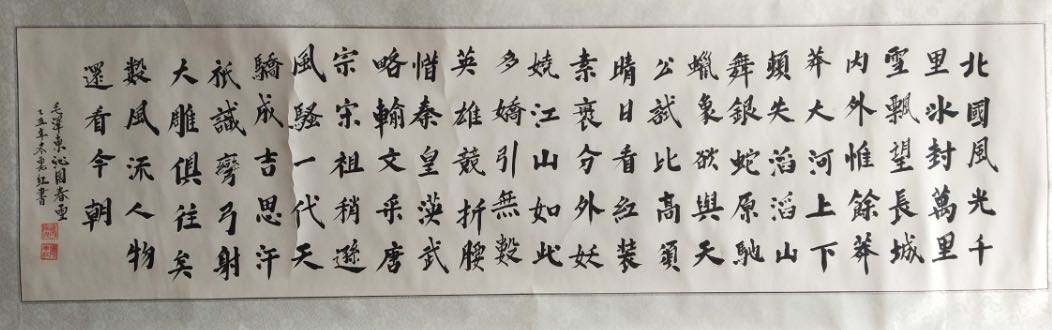 北國風光千
里冰封萬里
雪飄望長城
内外惟餘莽
莽大河上下
頓失滔滔山
舞銀蛇原馳
蠟象欲與天
公試比高須
晴日看紅裝
素裹分外妖
嬈江山如此
多嬌引無數
英雄競折腰
惜秦皇漢武
略輸文采唐
宗宋祖稍遜
風騷一代天
驕成吉思汗
祇識彎弓射
大雕俱往矣
數風流人物
還看今朝
毛澤東沁园春雪
丑年冬紅書